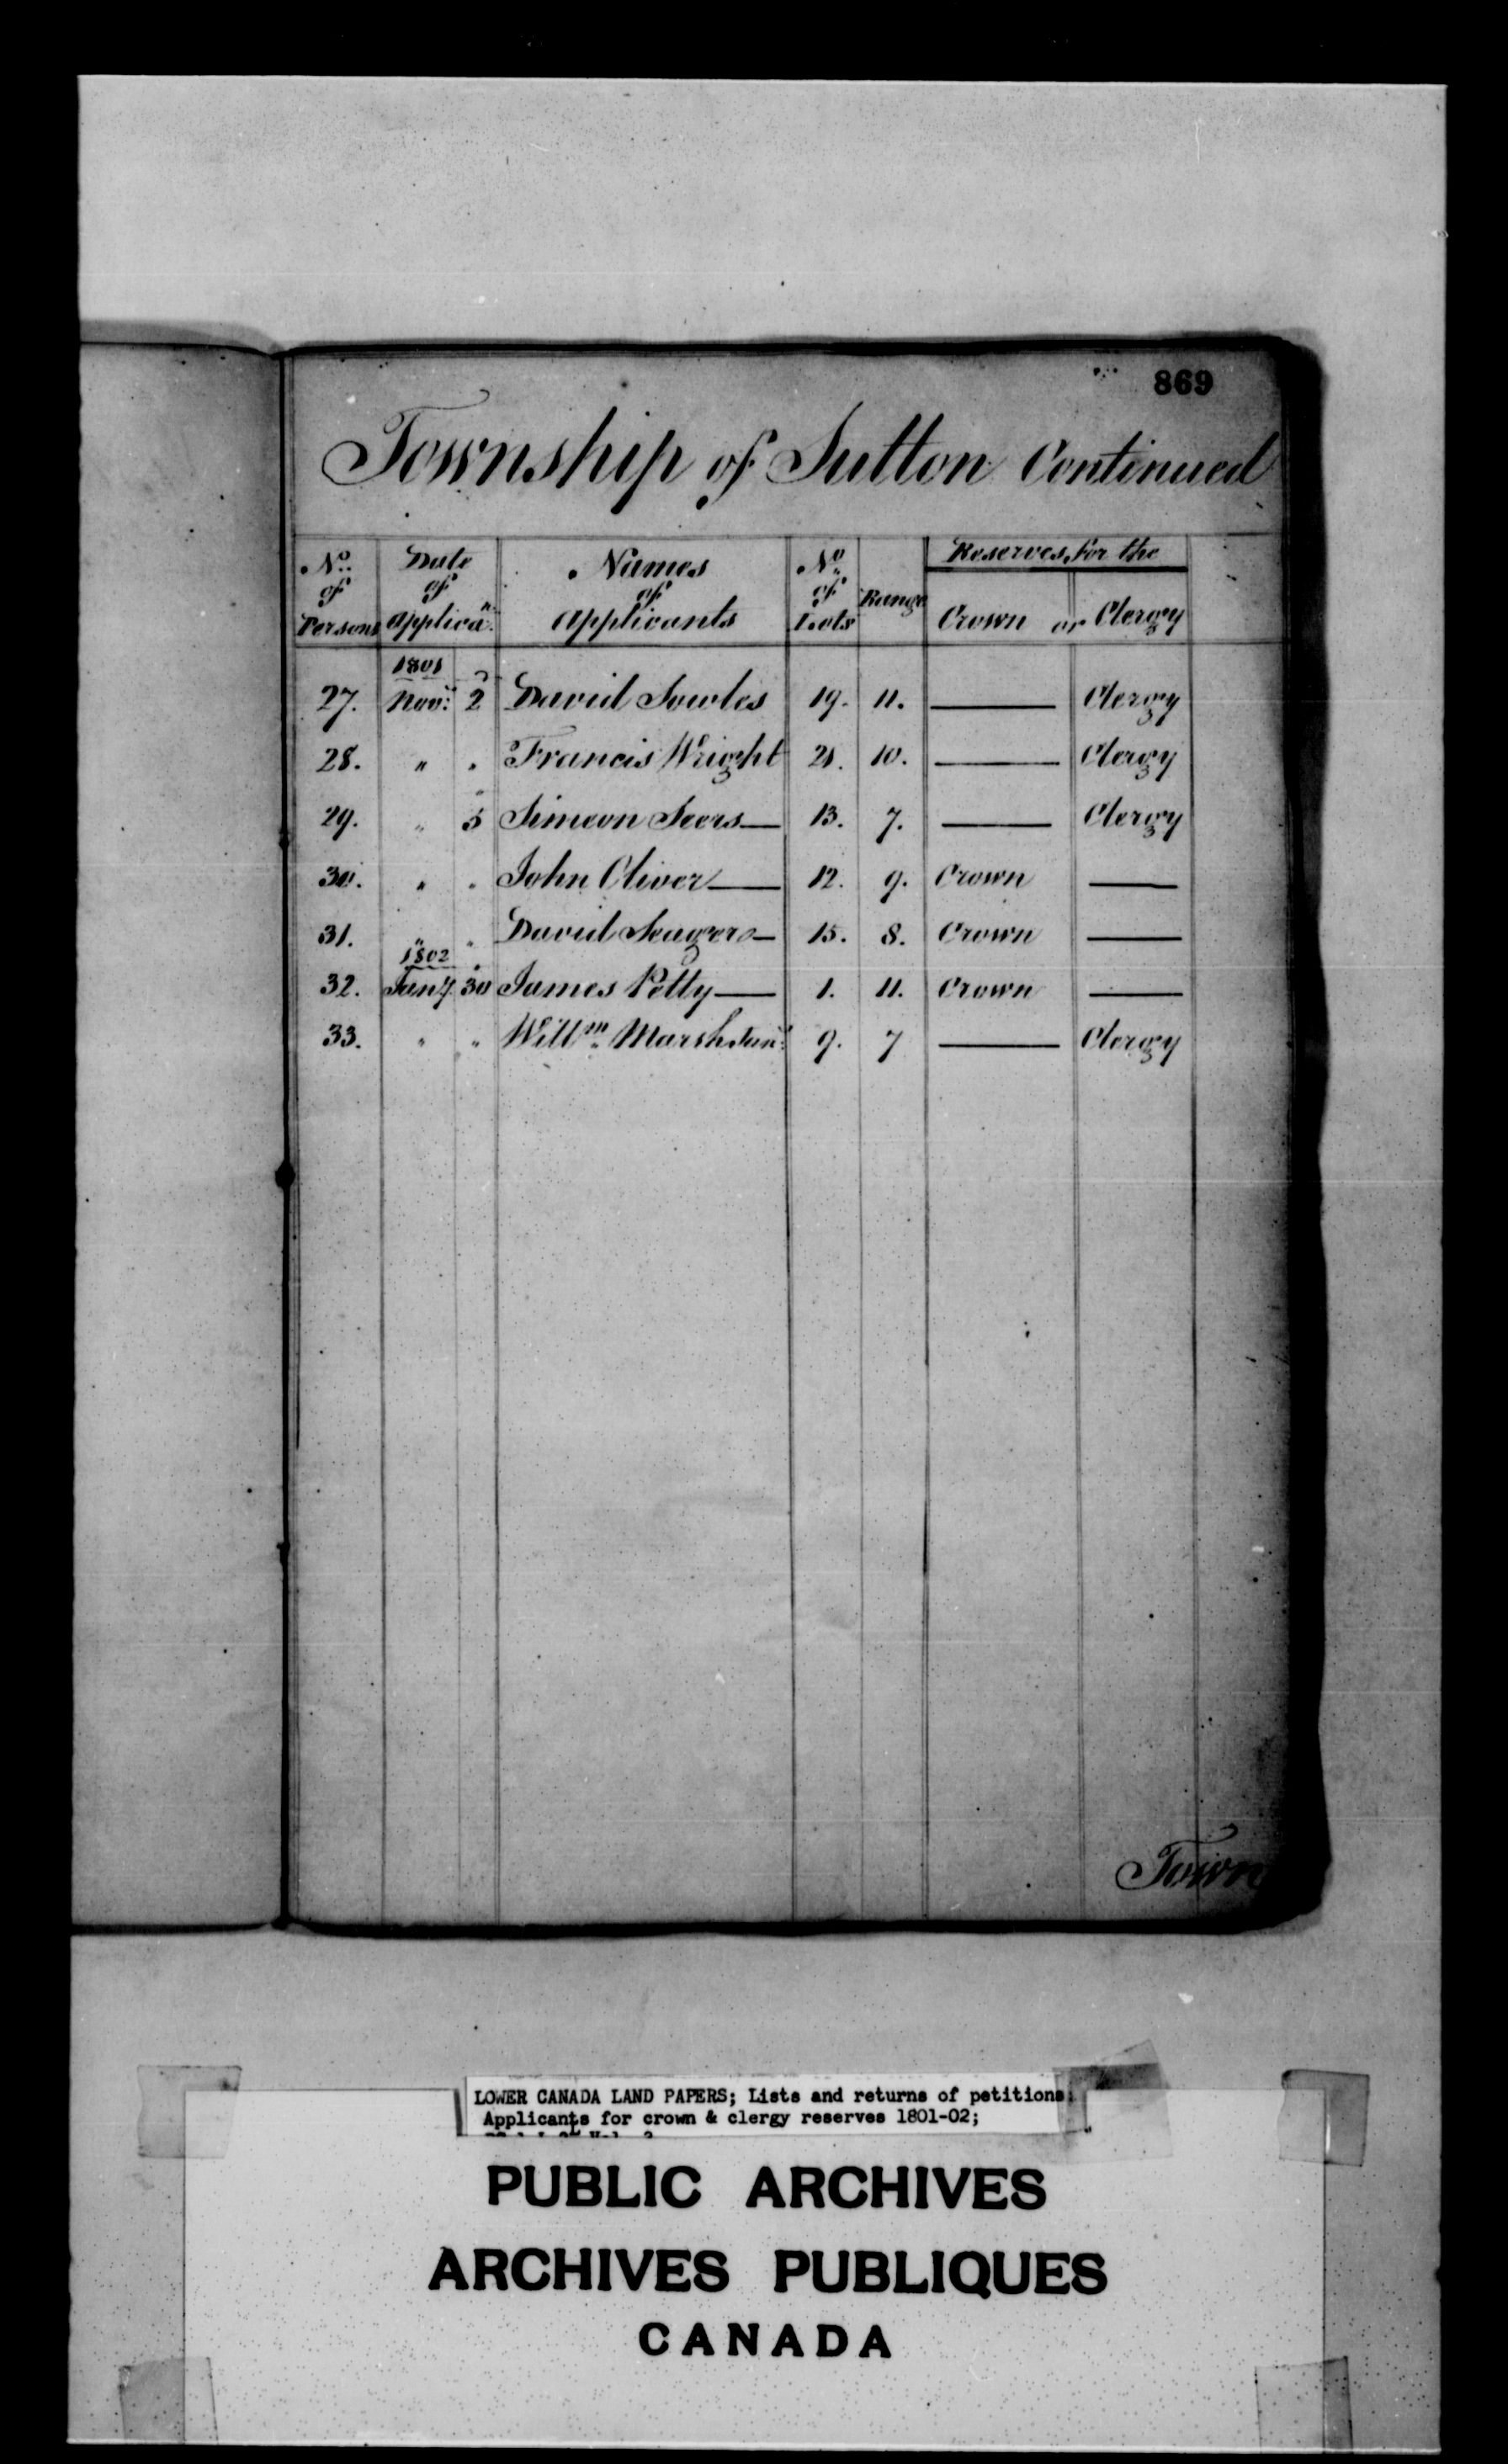 869
Township of Sutton Continued
No. of Persons | Date of Applican. | Names of Applicants | No. of Lots | Range | Reserves for the Crown or Clergy
1801
27. Novr. 2 David Sowles 19. 11. — Clergy
28. " " Francis Wright 21. 10. — Clergy
29. " 5 Simeon Seers — 13. 7. — Clergy
30. " " John Oliver — 12. 9. Crown —
31. " " David Seagers — 15. 8. Crown —
1802
32. Jany. 30 James Petty — 1. 11. Crown —
33. " " Willm. Marsh Junr. 9. 7 — Clergy
Town
LOWER CANADA LAND PAPERS; Lists and returns of petitions:
Applicants for crown & clergy reserves 1801-02;
PUBLIC ARCHIVES
ARCHIVES PUBLIQUES
CANADA